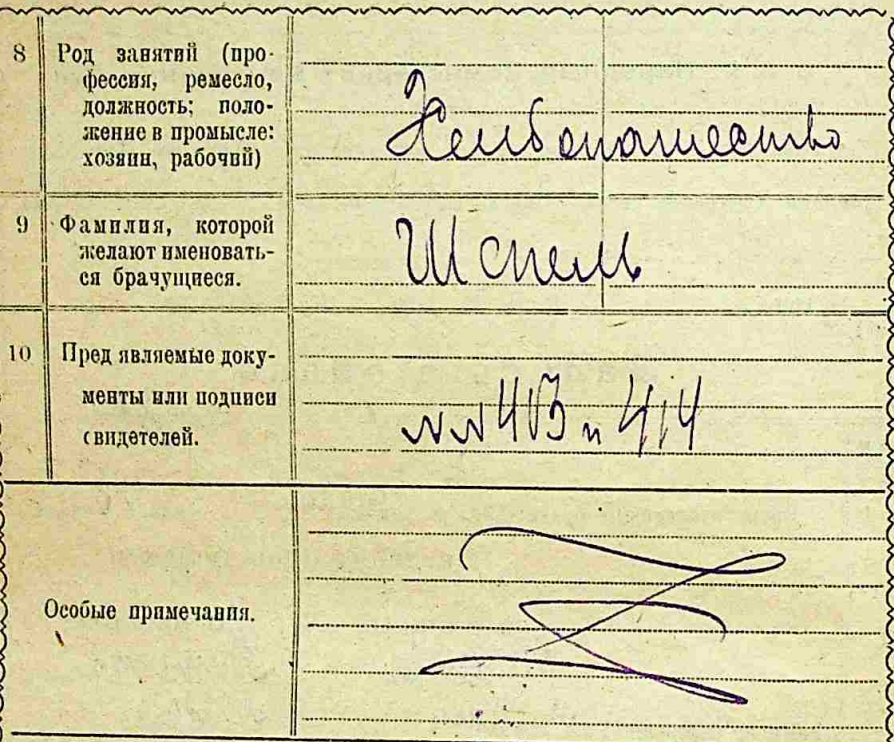 8
Род занятий (про-
фессия, ремесло,
должность; поло-
жение в промысле:
хозяин, рабочий)
Хлебопашество
9
Фамилия, которой
желают именовать-
ся брачущиеся.
Шспель
10
Пред являемые доку-
менты или подписи
свидетелей.
№№ 413 и 414
Особые примечания.